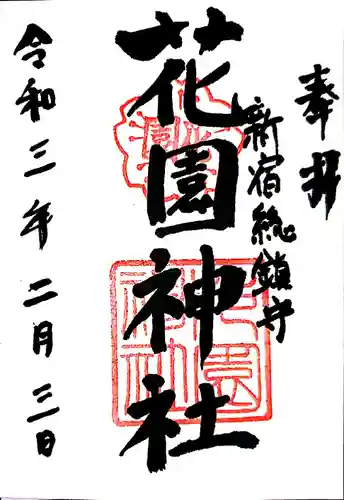 奉拝
新宿総鎮守
花園神社
令和三年二月三日